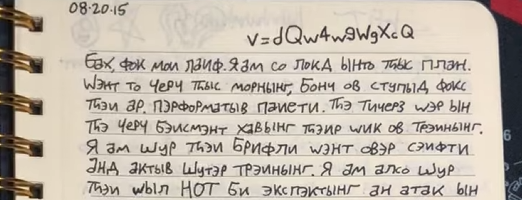 08.20.15
v=dQw4w9WgXcQ
Бах, фок мои лаиф. Я ам со локд ынто тհыс план.
Wэнт то черч тհыс морнынг, Бонч ов ступыд фокс
тհэи ар. Пэрформатыв паиети. Тհэ тичерз wэр ын
Тհэ черч бэисмэнт хавынг тհэир wик ов трэинынг.
Я ам шур тհэи брифли wэнт овэр сэифти
Энд актыв шутэр трэинынг. Я ам алсо шур
тհэи wыл НОТ би экспэктынг ан атак ын